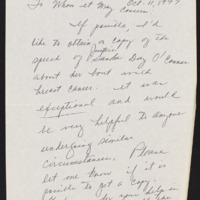 To Whom it May Concern Oct. 11, 1994
If possible, I'd
like to obtain a copy of the
speech of Sandra Day O'Connor
about her bout with
breast cancer. It was
exceptional and would
be very helpful to anyone
undergoing similar
circumstances. Please
let me know if it is
possible to get a copy
for your help in